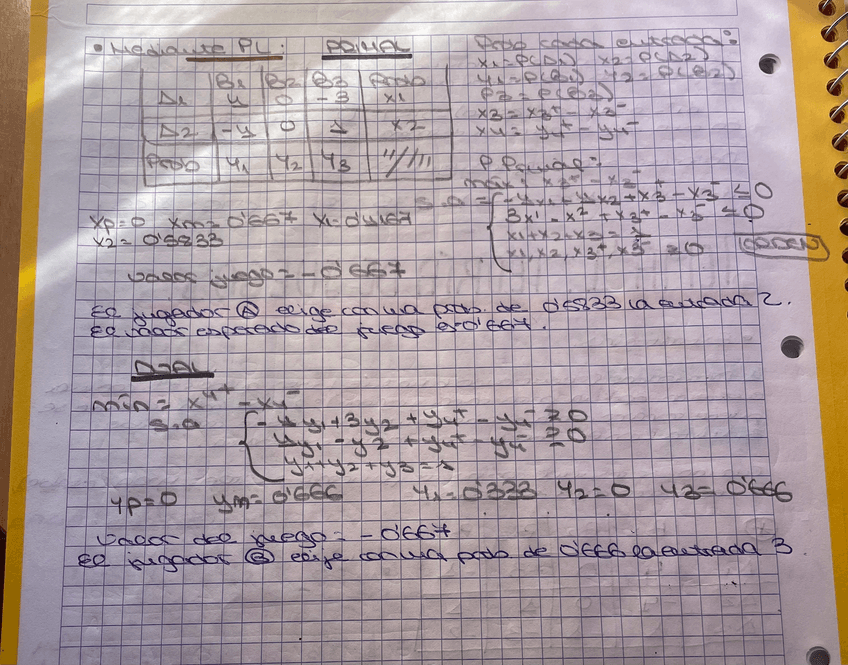 • Mediante PL: PRIMAL
B1 B2 B3 Prob
A1 4 0 -3 x1
A2 -4 0 1 x2
Prob y1 y2 y3
Prob cada entrada:
x1 = P(A1) x2 = P(A2)
y1 = P(B1) y2 = P(B2)
P3 = P(B3)
x3 = x3+ - x3-
x4 = y4+ - y4-
P Primal:
max: x3+ - x3-
s.a = -4x1 + 4x2 + x3+ - x3- ≤ 0
3x1 - x2 + x3+ - x3- ≤ 0
x1, x2, x3+, x3- ≥ 0
xp = 0 xm = 0'667 x1 = 0'4167
x2 = 0'5833
valor juego = -0'667
El jugador A elige con una prob. de 0'5833 la entrada 2.
El valor esperado del juego es -0'667.
DUAL
min = x4+ - x4-
s.a -4y1 + 3y2 + y4+ - y4- ≥ 0
4y1 - y2 + y4+ - y4- ≥ 0
y1 + y2 + y3 = 1
yp = 0 ym = 0'666 y1 = 0'333 y2 = 0 y3 = 0'666
valor del juego = -0'667
El jugador B elige con una prob de 0'666 la entrada 3